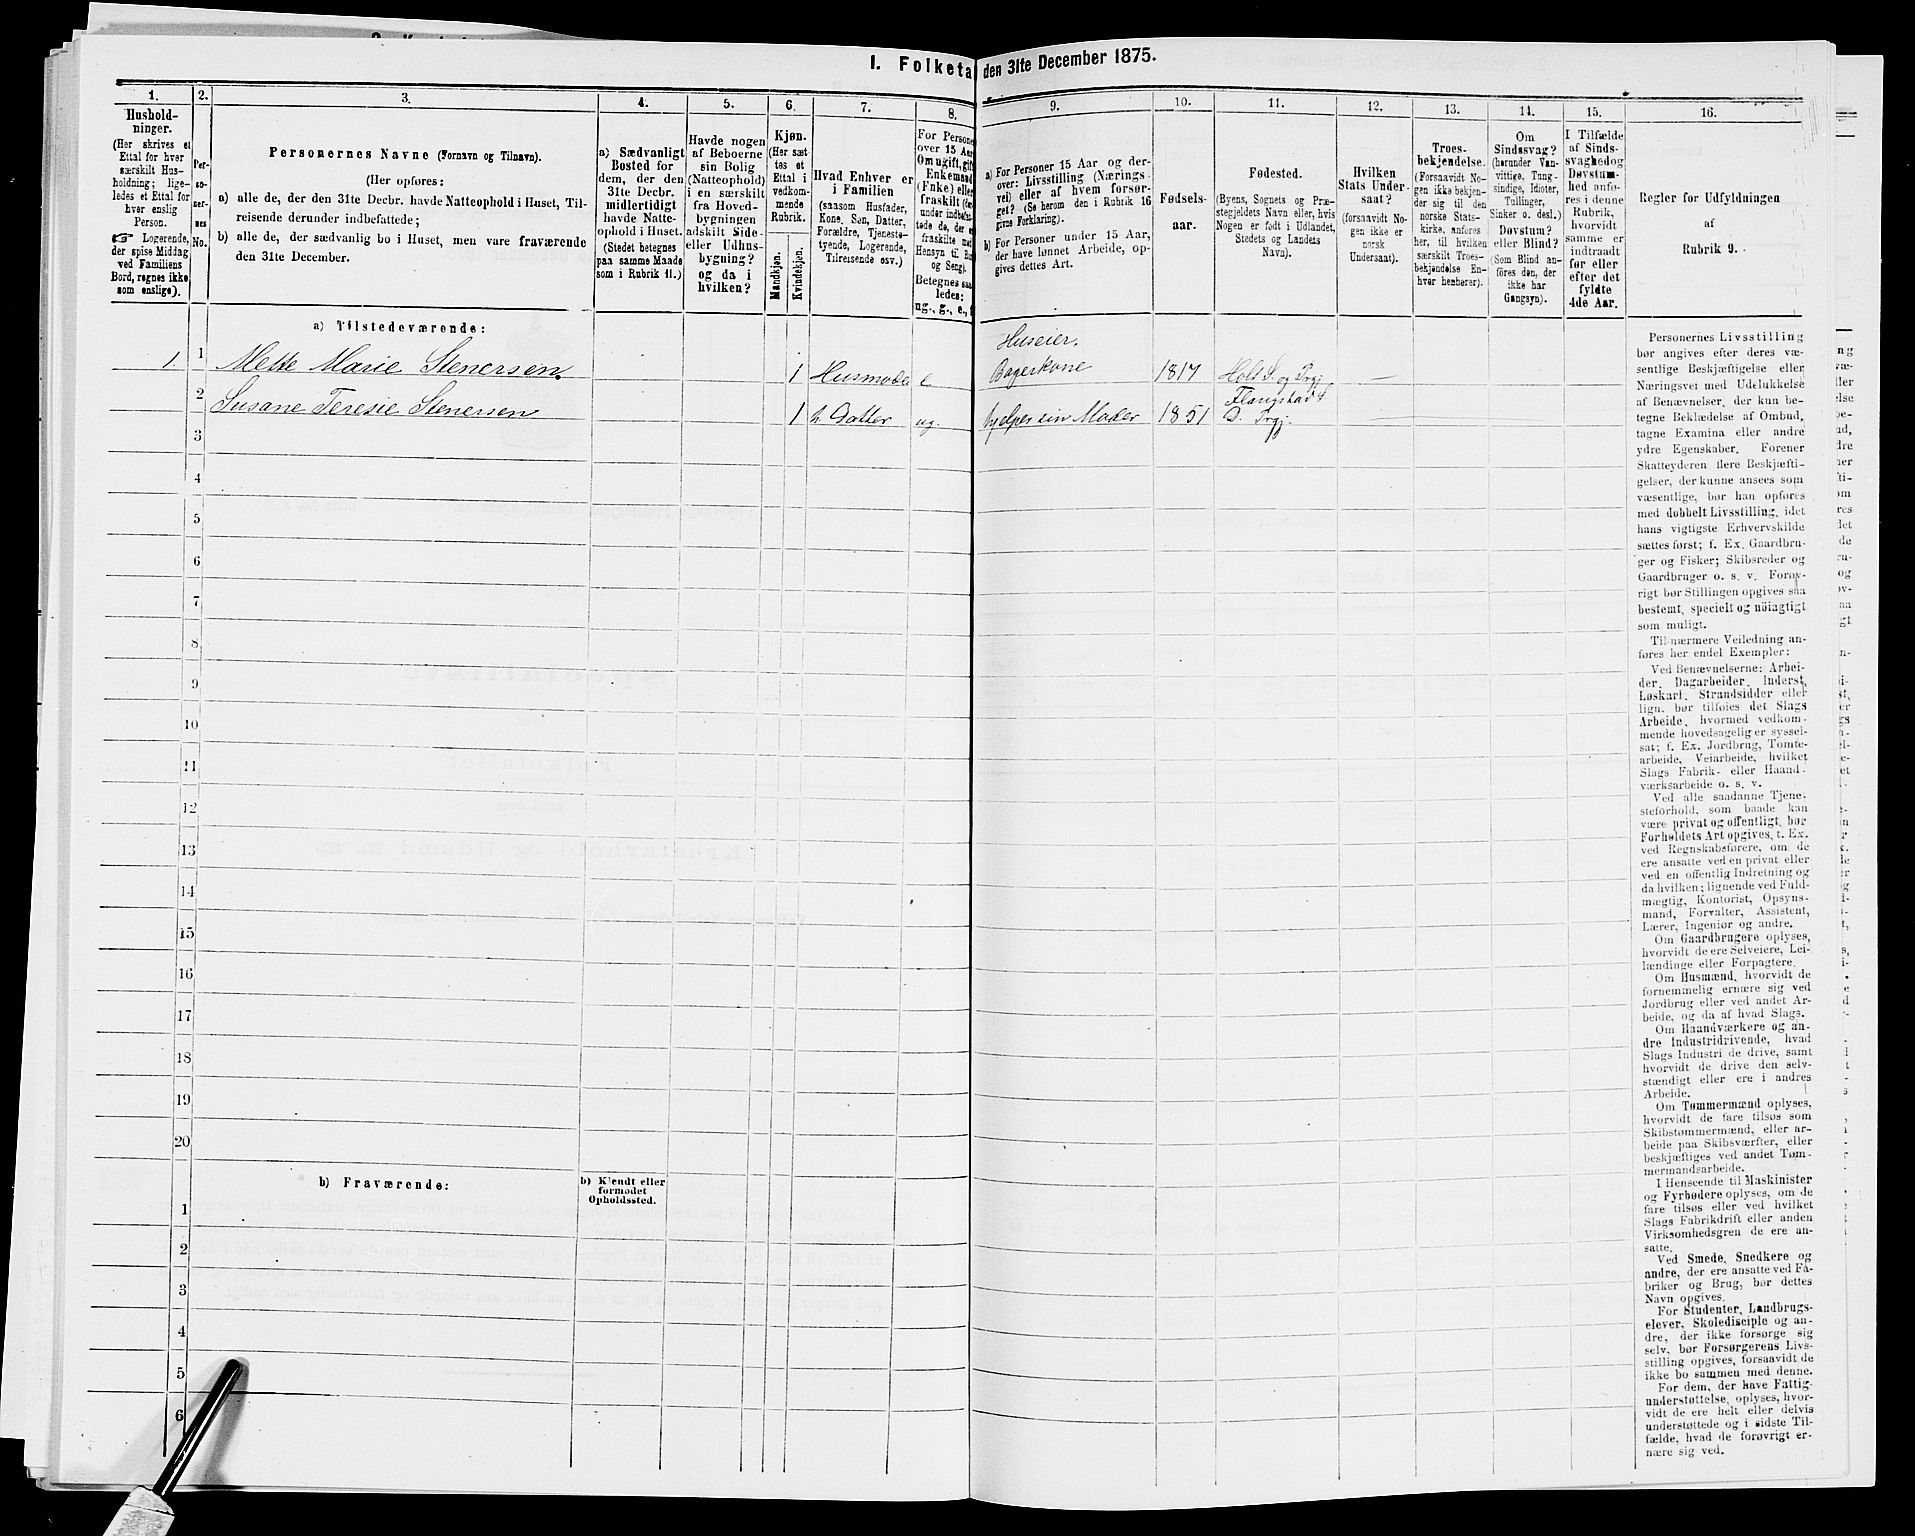 I. Folketa
den 31te December 1875.
1.
Hushold-
ninger.
(Her skrives et
Ettal for hver
særskilt Hus-
holdning; lige-
ledes et Ettal for
hver enslig
Person.
☞ Logerende,
der spise Middag
ved Familiens
Bord, regnes ikke
som enslige).
2.
Per-
so-
ner-
nes
No.
3.
Personernes Navne (Fornavn og Tilnavn).
(Her opføres:
a) alle de, der den 31te Decbr. havde Natteophold i Huset, Til-
reisende derunder indbefattede;
b) alle de, der sædvanlig bo i Huset, men vare fraværende
den 31te December.
4.
a) Sædvanligt
Bosted for
dem, der den
31te Decbr.
midlertidigt
havde Natte-
ophold i Huset.
(Stedet betegnes
paa samme Maade
som i Rubrik 11.)
5.
Havde nogen
af Beboerne
sin Bolig
(Natteophold)
i en særskilt
fra Hoved-
bygningen
adskilt Side-
eller Udhus-
bygning?
og da i
hvilken?
6.
Kjøn.
(Her sæt-
tes et
Ettal i
vedkom-
mende
Rubrik.
Mandkjøn.
Kvindekjøn.
7.
Hvad Enhver er
i Familien
(saasom Husfader,
Kone, Søn, Datter,
Forældre, Tjeneste-
tyende, Logerende,
Tilreisende osv.)
8.
For Persone
over 15 Aar
Om ugift, gift
Enkemand
(Enke) eller
fraskilt
under
tede de, der
fraskilte
Hensyn til
og Seng).
Betegnes saa
ledes:
ug., g., e., f
9.
a) For Personer 15 Aar og der-
over: Livsstilling (Nærings-
vei) eller af hvem forsør-
get? (Se herom den i Rubrik 16
givne Forklaring).
b) For Personer under 15 Aar,
der have lønnet Arbeide, op-
gives dettes Art.
10.
Fødsels-
aar.
11.
Fødested.
(Byens, Sognets og Præ-
stegjeldets Navn eller, hvis
Nogen er født i Udlandet,
Stedets og Landets
Navn).
12.
Hvilken
Stats Under-
saat?
(forsaavidt No-
gen ikke er
norsk
Undersaat).
13.
Troes-
bekjendelse.
(Forsaavidt No-
gen ikke bekjen-
der sig til den
norske Stats-
kirke, anføres
her, til hvilken
særskilt Troes-
bekjendelse En-
hver henhører).
14.
Om
Sindssvag?
(herunder Van-
vittige, Tung-
sindige, Idioter,
Tullinger,
Sinker o. desl.)
Døvstum?
eller Blind?
(Som Blind an-
føres den, der
ikke har
Gangsyn).
15.
I Tilfælde
af Sinds-
svaghed og
Døvstum-
hed anfø-
res i denne
Rubrik,
hvorvidt
samme er
indtraadt
før eller
efter det
fyldte
4de Aar.
16.
Regler for Udfyldningen
af
Rubrik 9.
a) Tilstedeværende:
1. 1 Mette Marie Stenersen. 1 Husmoder e Huseier. Bagerkone 1817 Holt S. og Prgj —
2 Susane Teresie Stenersen 1 h. Datter ug. hjelper sin Moder 1851 Flangstad S D. Prgj. —
3
4
5
6
7
8
9
10
11
12
13
14
15
16
17
18
19
20
b) Fraværende:
b) Kjendt eller
formodet
Opholdssted.
1
2
3
4
5
6
Personernes Livsstilling
bør angives efter deres væ-
sentlige Beskjæftigelse eller
Næringsvei med Udelukkelse
af Benævnelser, der kun be-
tegne Beklædelse af Ombud,
tagne Examina eller andre
ydre Egenskaber. Forener
Skatteyderen flere Beskjæfti-
gelser, der kunne ansees som
væsentlige, bør han opføres
med dobbelt Livsstilling, idet
hans vigtigste Erhvervskilde
sættes først; f. Ex. Gaardbru-
ger og Fisker; Skibsreder og
Gaardbruger o. s. v. Forøv-
rigt bør Stillingen opgives saa
bestemt, specielt og nöiagtigt
som muligt.
Til nærmere Veiledning an-
føres her endel Exempler:
Ved Benævnelserne: Arbei-
der, Dagarbeider, Inderst,
Løskarl, Strandsidder eller
lign. bør tilføies det Slags
Arbeide, hvormed vedkom-
mende hovedsagelig er syssel-
sat; f. Ex. Jordbrug, Tomte-
arbeide, Veiarbeide, hvilket
Slags Fabrik- eller Haand-
værksarbeide o. s. v.
Ved alle saadanne Tjene-
steforhold, som baade kan
være privat og offentligt, bør
Forholdets Art opgives, t. Ex.
ved Regnskabsførere, om de
ere ansatte ved en privat eller
ved en offentlig Indretning og
da hvilken; lignende ved Fuld-
mægtig, Kontorist, Opsyns-
mand, Forvalter, Assistent,
Lærer, Ingeniør og andre.
Om Gaardbrugere oplyses,
hvorvidt de ere Selveiere, Lei-
lændinge eller Forpagtere.
Om Husmænd, hvorvidt de
fornemmelig ernære sig ved
Jordbrug eller ved andet Ar-
beide, og da af hvad Slags.
Om Haandværkere og an-
dre Industridrivende, hvad
Slags Industri de drive, samt
hvorvidt de drive den selv-
stændigt eller ere i andres
Arbeide.
Om Tømmermænd oplyses,
hvorvidt de fare tilsøs som
Skibstømmermænd, eller ar-
beide paa Skibsværfter, eller
beskjæftiges ved andet Tøm-
mermandsarbeide.
I Henseende til Maskinister
og Fyrbødere oplyses, om de
fare tilsøs eller ved hvilket
Slags Fabrikdrift eller anden
Virksomhedsgren de ere an-
satte.
Ved Smede, Snedkere og
andre, der ere ansatte ved Fa-
briker og Brug, bør dettes
Navn opgives.
For Studenter, Landbrugs-
elever, Skoledisciple og an-
dre, der ikke forsørge sig
selv, bør Forsørgerens Livs-
stilling opgives, forsaavidt de
ikke bo sammen med denne.
For dem, der have Fattig-
understøttelse, oplyses, hvor-
vidt de ere helt eller delvis
understøttede og i sidste Til-
fælde, hvad de forøvrigt er-
nære sig ved.